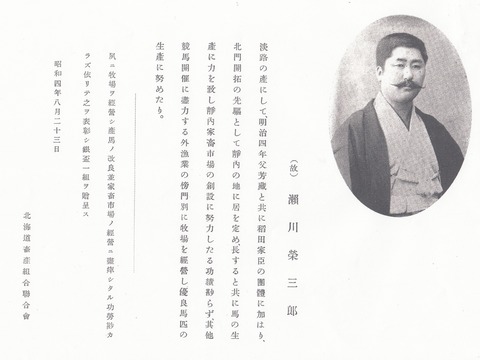 (故) 瀬川榮三郎
淡路の產にして、明治四年父芳藏と共に稻田家臣の團體に加はり、
北門開拓の先驅として靜內の地に居を定め、長ずると共に馬の生
產に力を致し靜內家畜市場の創設に努力したる功績尠らず、其他
競馬開催に盡力する外漁業の傍門別に牧場を經營し優良馬匹の
生產に努めたり。
夙ニ牧場ヲ經營シ產馬ノ改良並家畜市場ノ經營ニ盡瘁シタル功勞尠カ
ラズ依リテ之ヲ表彰シ銀盃一組ヲ贈呈ス
昭和四年八月二十三日
北海道畜產組合聯合會